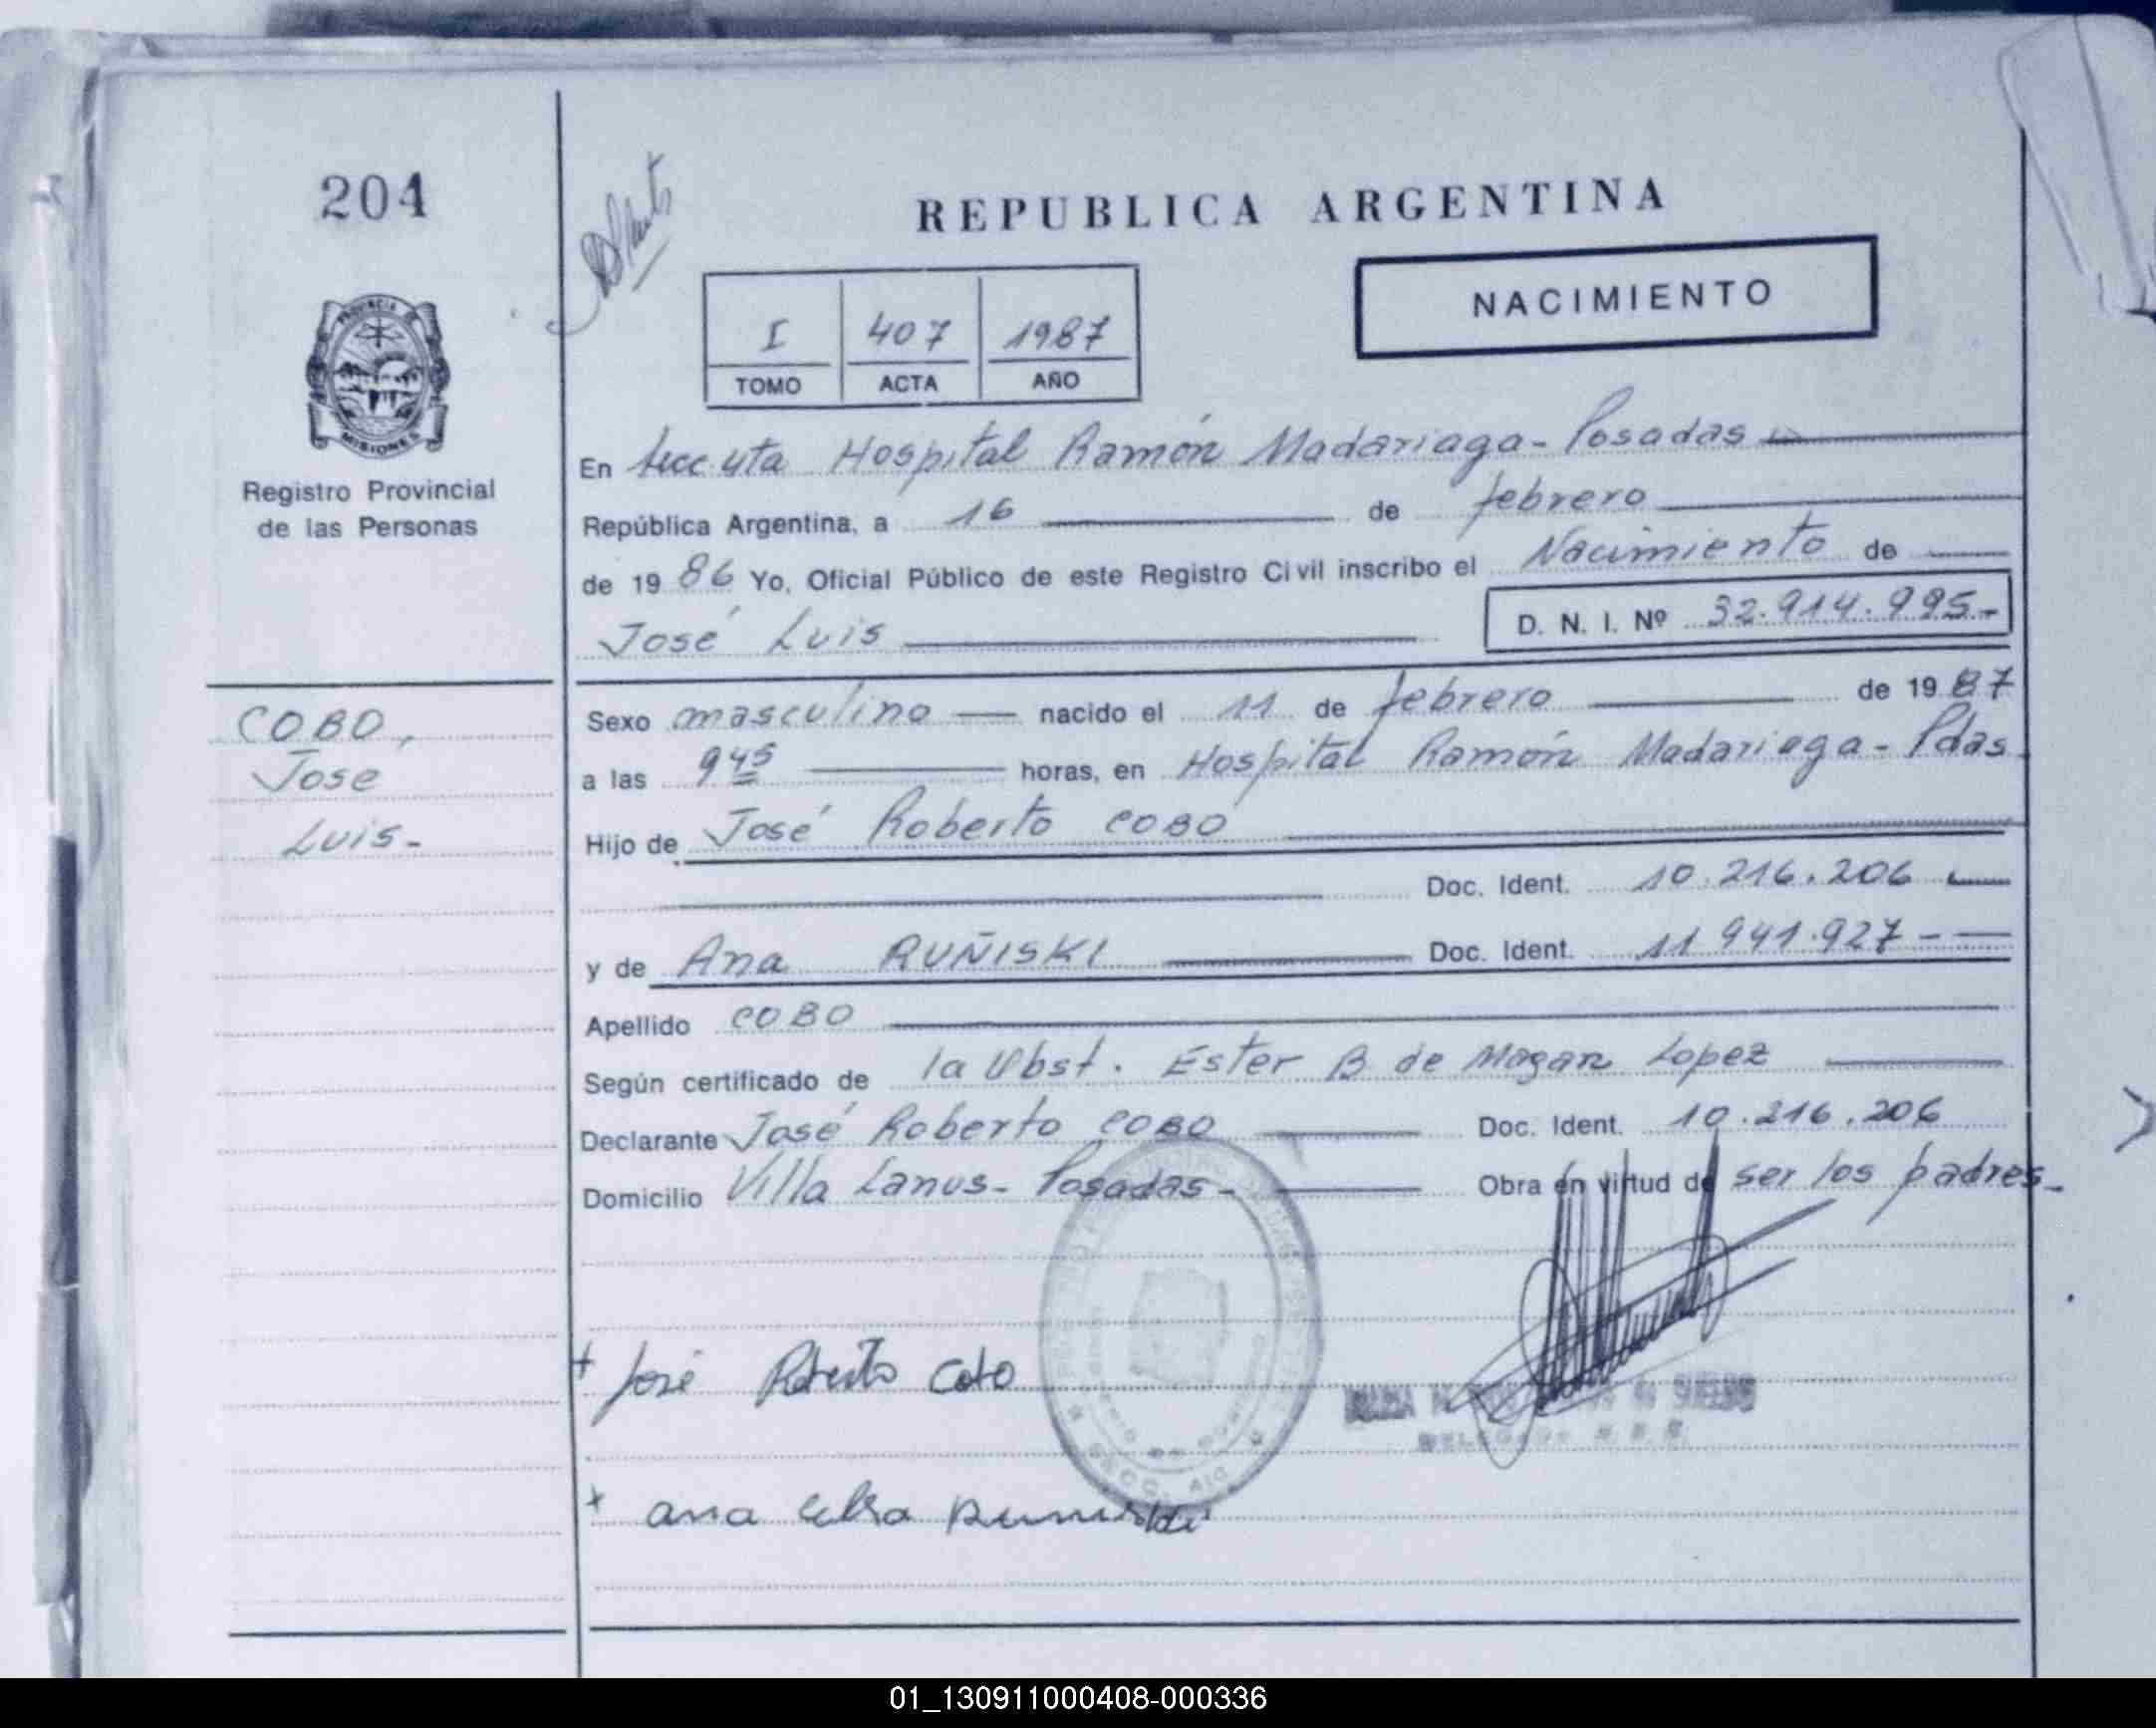 204
REPUBLICA ARGENTINA
NACIMIENTO
I 407 1987
TOMO ACTA AÑO
PROVINCIA DE
MISIONES
Registro Provincial
de las Personas
En Hospital Ramón Madariaga - Posadas
República Argentina, a 16 de febrero
de 1986 Yo, Oficial Público de este Registro Civil inscribo el Nacimiento de
José Luis
D. N. I. Nº 32.914.995.-
COBO,
Jose
Luis-
Sexo masculino nacido el 11 de febrero de 1987
a las 9 45 horas, en Hospital Ramón Madariaga - Pdas
Hijo de José Roberto COBO
Doc. Ident. 10.216.206
y de Ana RUÑISKI Doc. Ident. 11 941.927 -
Apellido COBO
Según certificado de la Obst. Ester B de Magan Lopez
Declarante José Roberto COBO Doc. Ident. 10.216.206
Domicilio Villa Lanus - Posadas - Obra en virtud de ser los padres-
+ José Roberto Cobo
DELEGADA
x ana
01_130911000408-000336